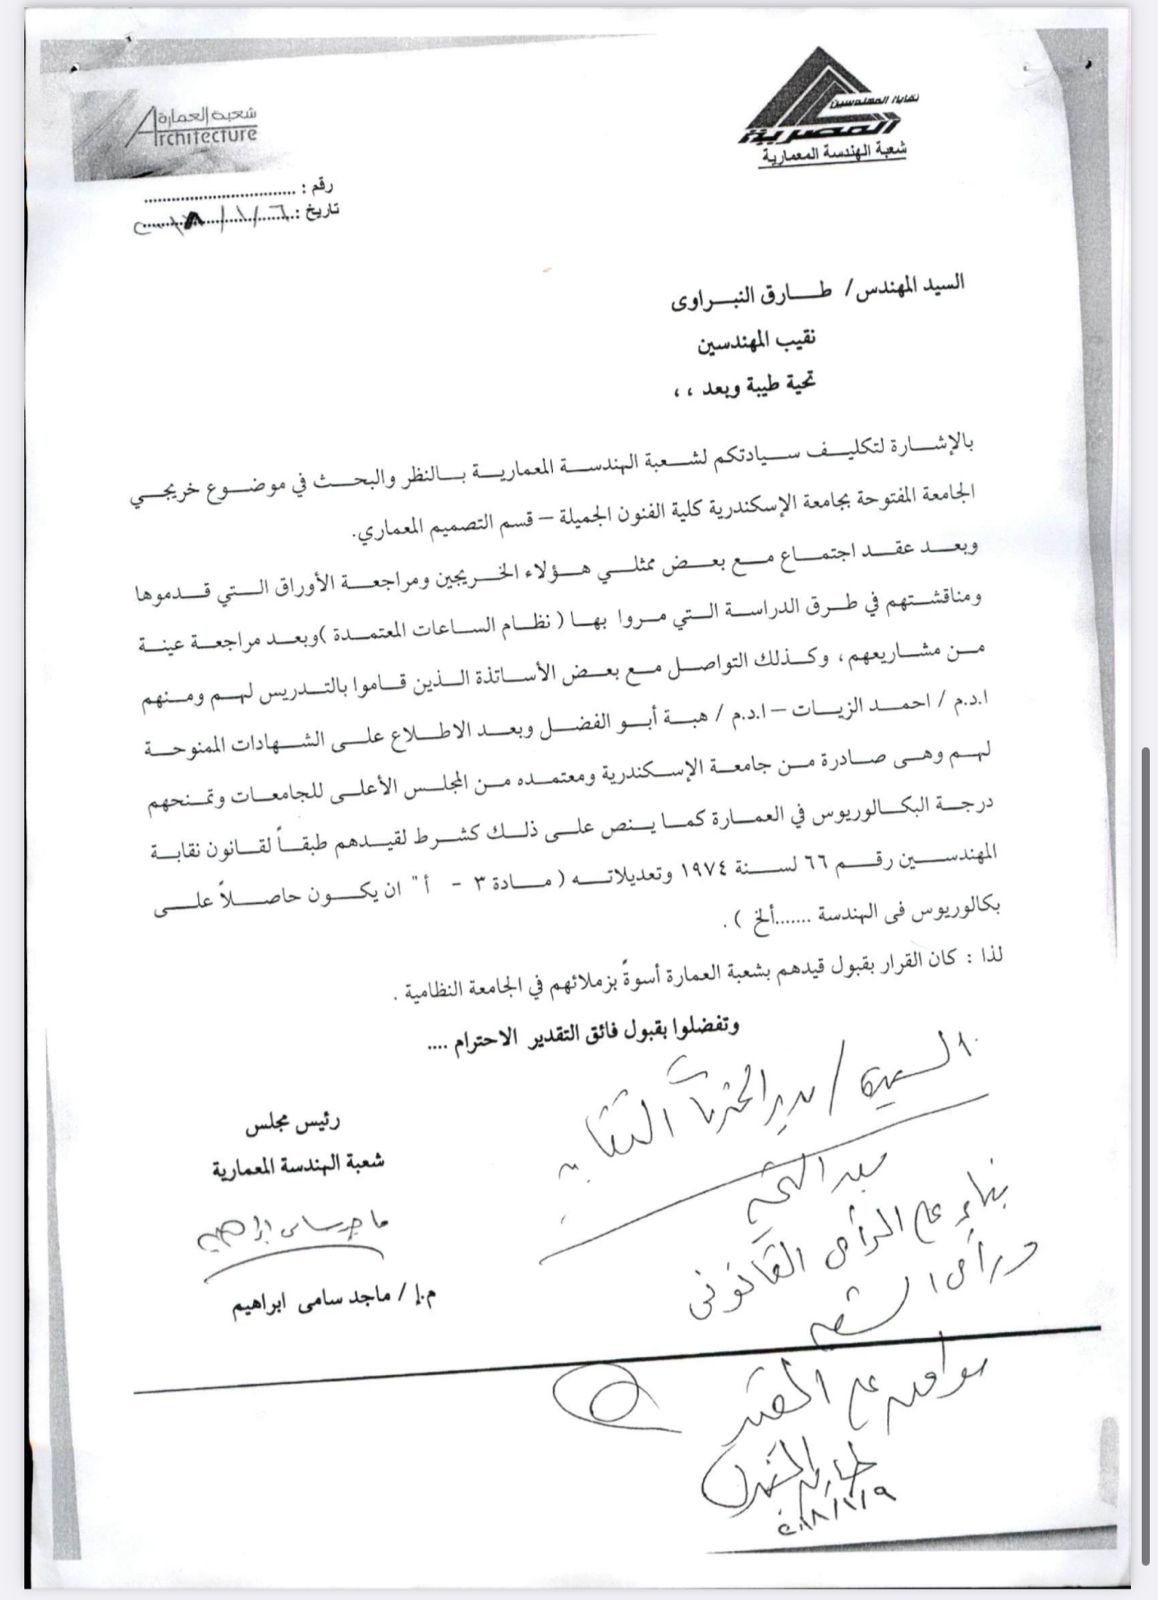 شعبة العمارة
Architecture
نقابة المهندسين
المصرية
شعبة الهندسة المعمارية
رقم : ................................
تاريخ : ٢٠١٨/١/٦
السيد المهندس/ طـــارق النبـــراوى
نقيب المهندسين
تحية طيبة وبعد ،،
بالإشارة لتكليف سيادتكم لشعبة الهندسة المعمارية بالنظر والبحث في موضوع خريجي
الجامعة المفتوحة بجامعة الإسكندرية كلية الفنون الجميلة – قسم التصميم المعماري.
وبعد عقد اجتماع مع بعض ممثلي هؤلاء الخريجين ومراجعة الأوراق التي قدموها
ومناقشتهم في طرق الدراسة التي مروا بها ( نظام الساعات المعتمدة )وبعد مراجعة عينة
من مشاريعهم، وكذلك التواصل مع بعض الأساتذة الذين قاموا بالتدريس لهم ومنهم
ا.د.م / احمد الزيات – ا.د.م / هبة أبو الفضل وبعد الاطلاع على الشهادات الممنوحة
لهم وهى صادرة من جامعة الإسكندرية ومعتمده من المجلس الأعلى للجامعات وتمنحهم
درجة البكالوريوس في العمارة كما ينص على ذلك كشرط لقيدهم طبقاً لقانون نقابة
المهندسين رقم ٦٦ لسنة ١٩٧٤ وتعديلاته ( مادة ٣ - أ " ان يكون حاصلاً على
بكالوريوس فى الهندسة .......ألخ ) .
لذا : كان القرار بقبول قيدهم بشعبة العمارة أسوةً بزملائهم في الجامعة النظامية .
وتفضلوا بقبول فائق التقدير الاحترام ....
رئيس مجلس
شعبة الهندسة المعمارية
ماجد سامى ابراهيم
م.إ / ماجد سامى ابراهيم
السيدة / مدير الخدمات النقابية
بعد التحية
بناء على الرأى القانونى
ورأى الشعبة
موافق على القيد
طارق النبراوى
٢٠١٨/١/٩